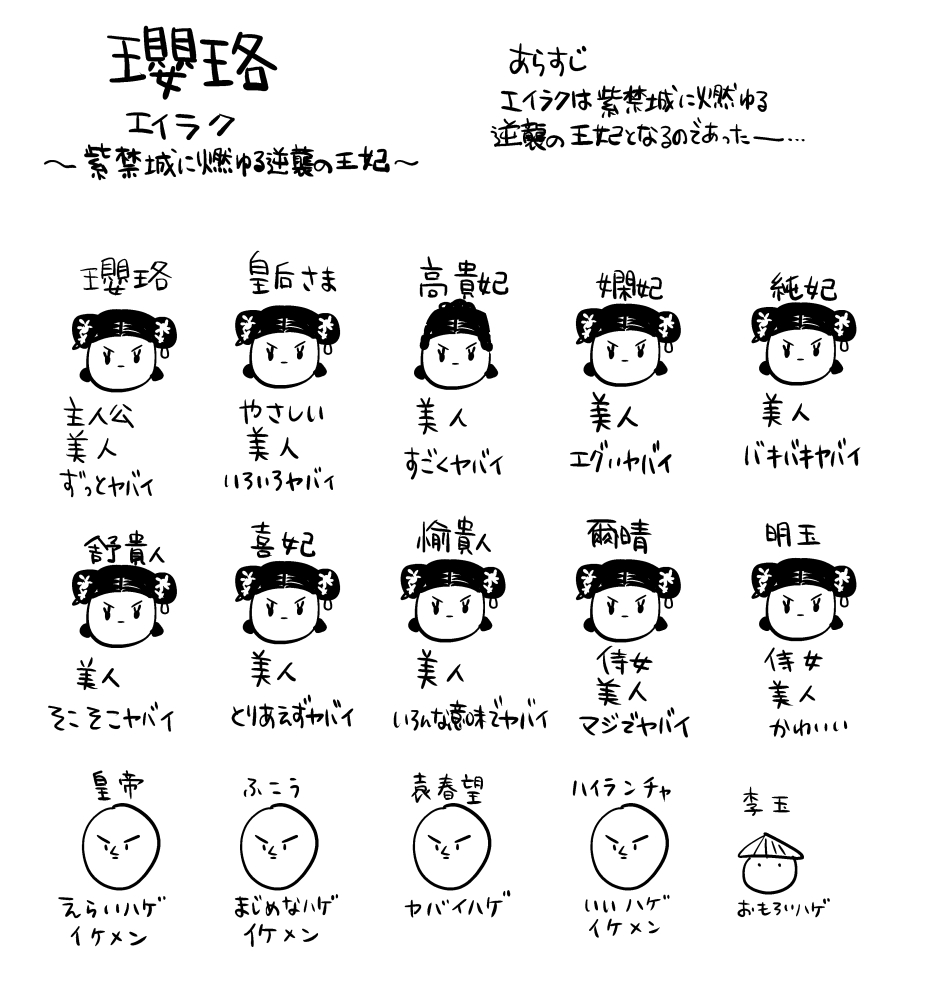 瓔珞
エイラク
～紫禁城に燃ゆる逆襲の王妃～
あらすじ
エイラクは紫禁城に燃ゆる
逆襲の王妃となるのであったー…
瓔珞
主人公
美人
ずっとヤバイ
皇后さま
やさしい
美人
いろいろヤバイ
高貴妃
美人
すごくヤバイ
嫻妃
美人
エグいヤバイ
純妃
美人
バキバキヤバイ
舒貴人
美人
そこそこヤバイ
喜妃
美人
とりあえずヤバイ
愉貴人
美人
いろんな意味でヤバイ
爾晴
侍女
美人
マジでヤバイ
明玉
侍女
美人
かわいい
皇帝
えらいハゲ
イケメン
ふこう
まじめなハゲ
イケメン
袁春望
ヤバイハゲ
ハイランチャ
いいハゲ
イケメン
李玉
おもろいハゲ